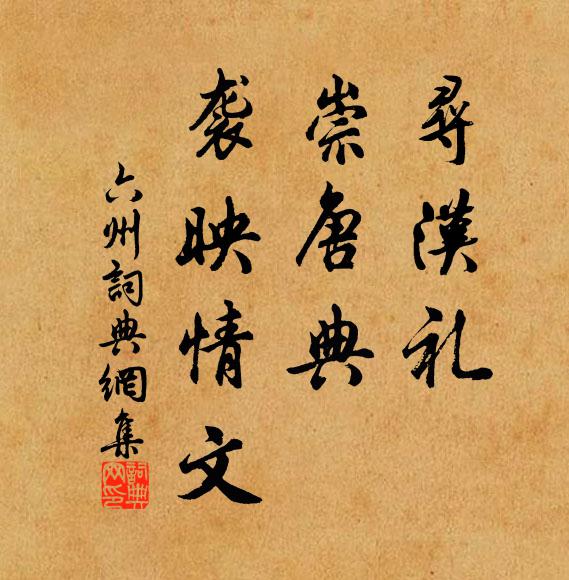 尋漢礼
崇唐典
袭映情文
六州詞典網集
詞典网印